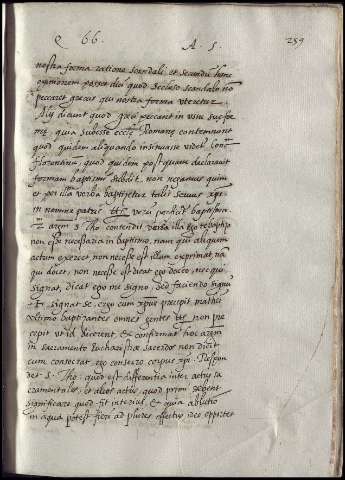 Q 66. A. 5. 259
nostra forma ratione scandali et secundu hanc
opinionem posset dici quod secluso scandalo no
peccaret grecus qui nostra forma uteretur
Alij dicunt quod greci peccant in usu suę for
mę, quia subesse ecclię Romanę contemnunt
quod quidem aliquando insinuasse videt Conc
florentinu, quod quidem postquam declarauit
formam baptismi subdit, non negamus quin
et per illa verba baptizetur talis seruus xpi
in nomine patris etc. veru perficit baptisma.
2 autem S Tho contendit verba illa ego te baptizo
non esse necessaria in baptismo, nam qui aliquem
actum exercet non necesse est illam exprimat, na
qui docet, non necesse est dicat ego doceo, nec qui
signat, dicat ego me signo, sed faciendo signu
+ signat se, ergo cum xpus precipit mathei
ultimo baptizantes omnes gentes etc non pre
cepit ut id dicerent, Et confirmat hoc autem
in sacramento Eucharistiæ sacerdos non dicit
cum consecrat, ego consecro corpus xpi. Respon
det S. Tho. quod est differentia inter actus sa
cramentales, et alios actus, quod primi debent
significare quod fit interius, Et quia ablutio
in aqua potest fieri ad plures effectus ideo oportet